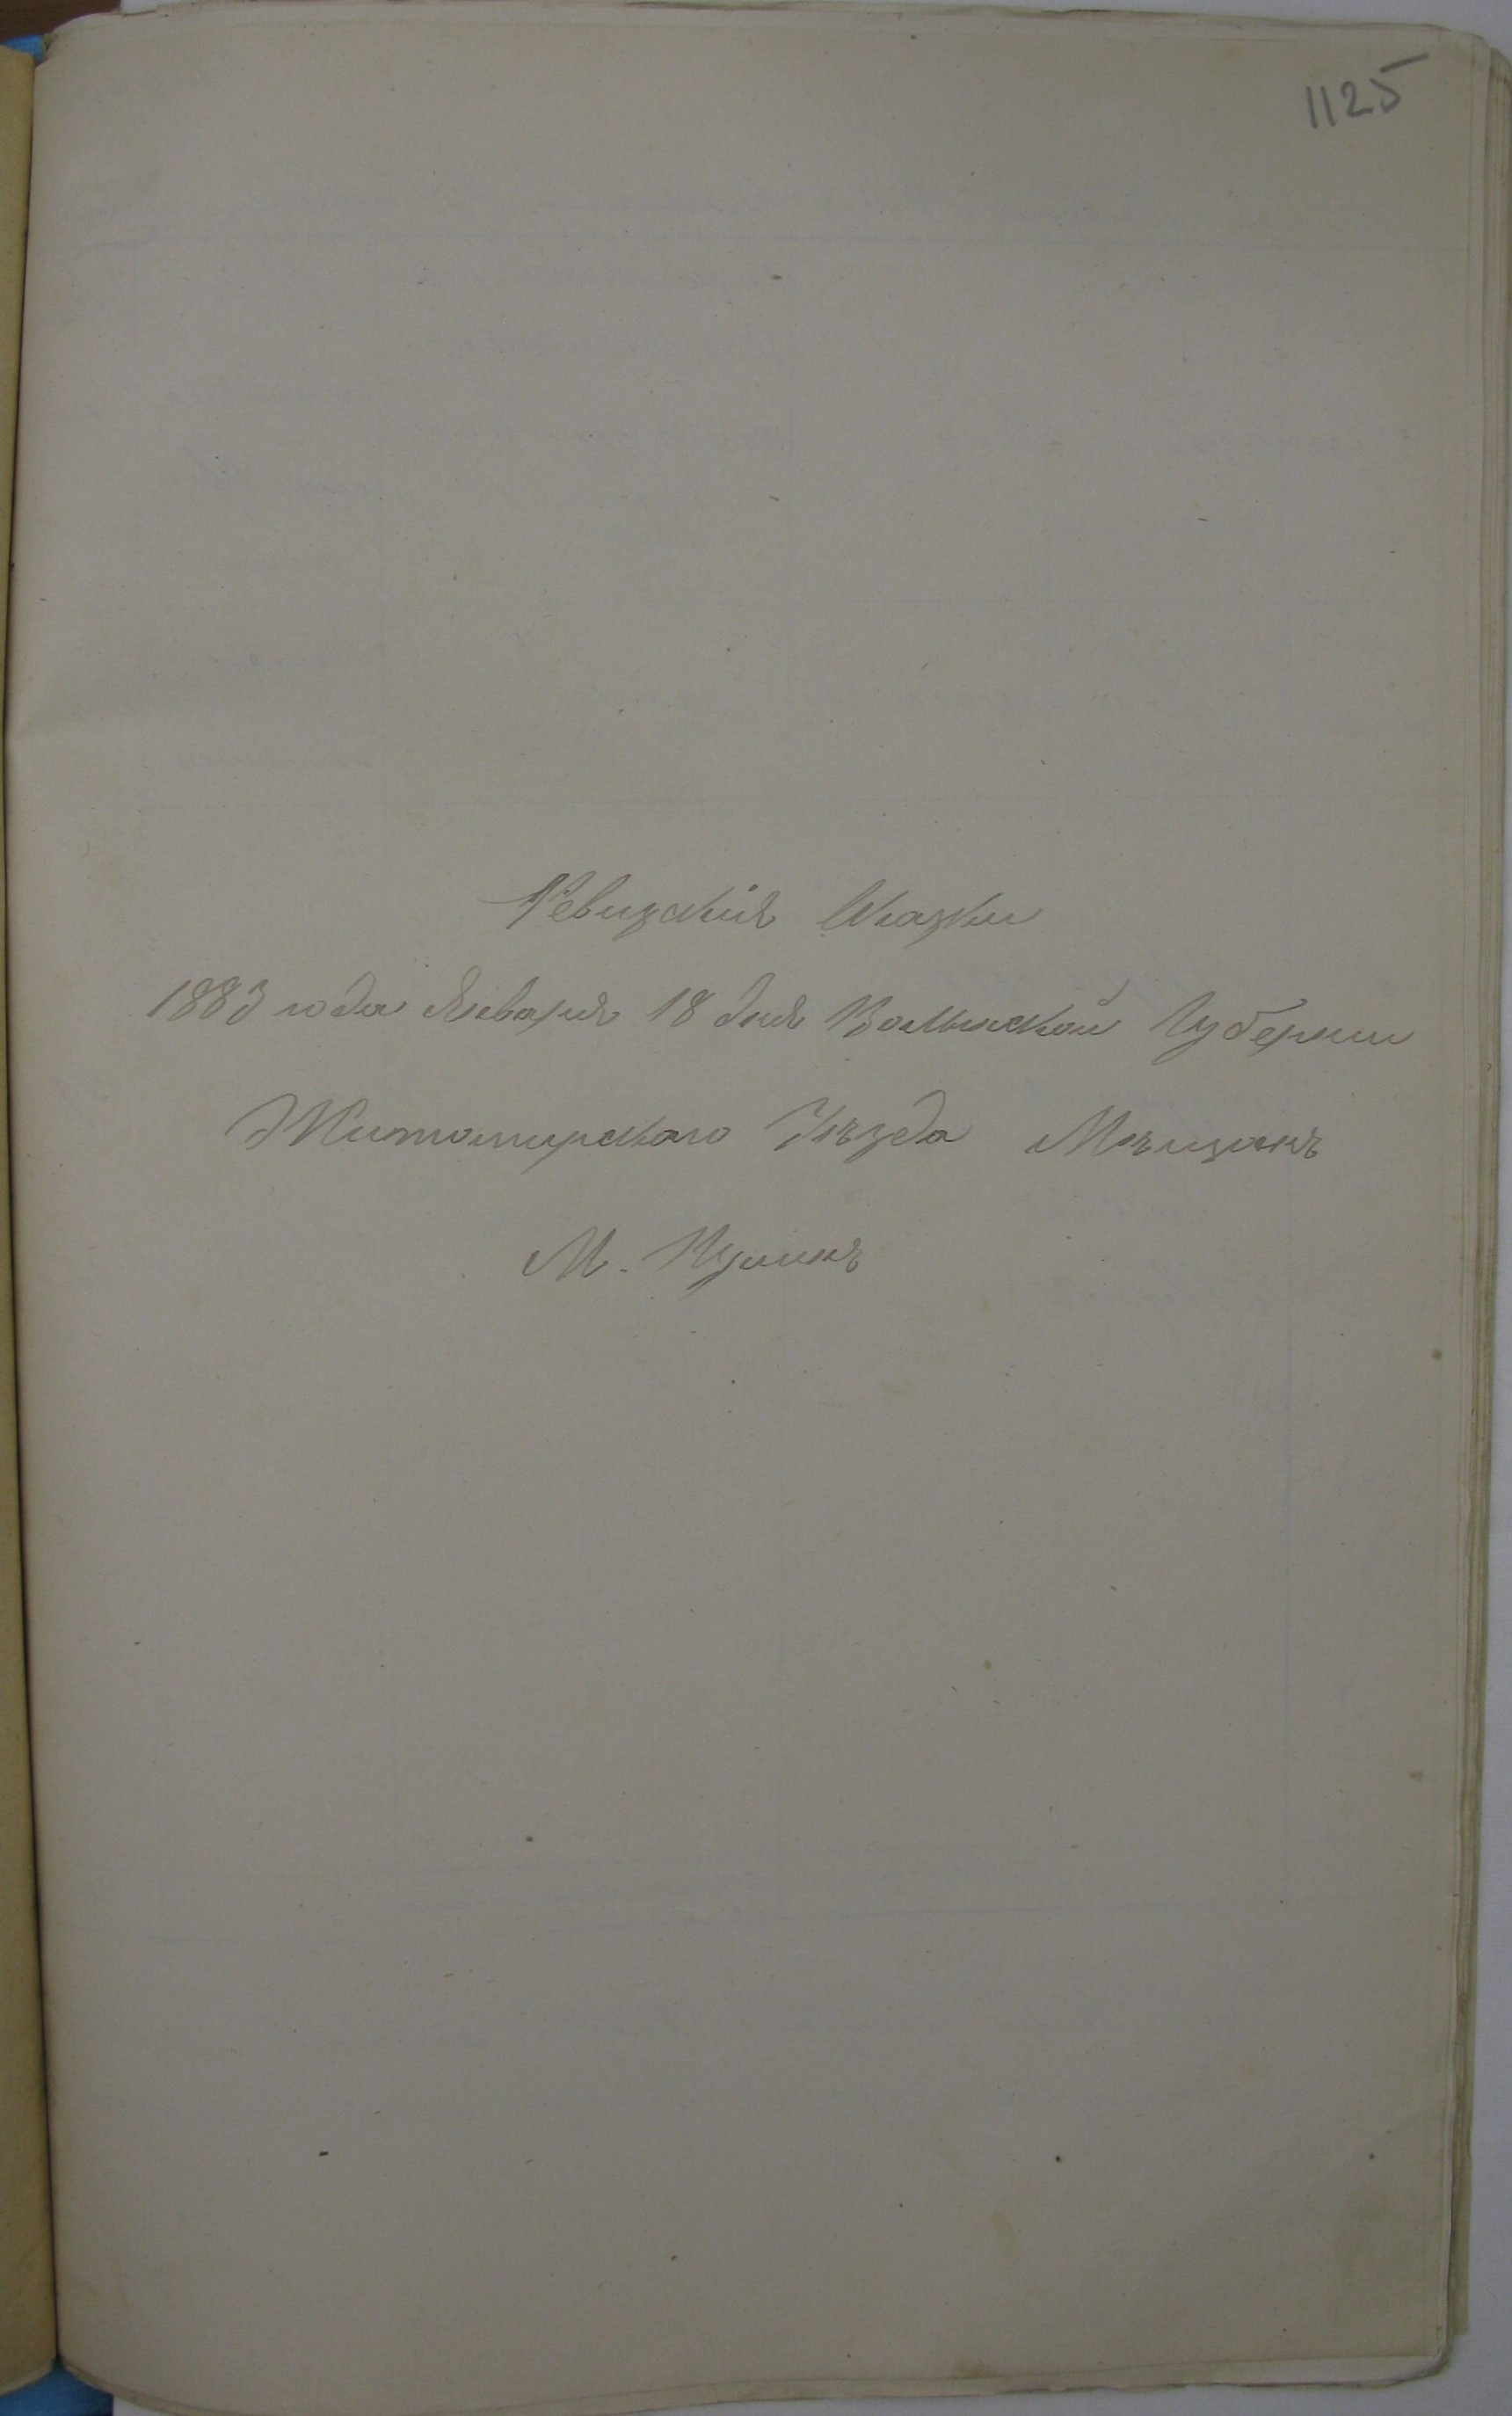 1125
Ревизскія Сказки
1883 года Января 18 дня Волынской Губернии
Житомирскаго Уѣзда Мѣщанъ
М. Пулинъ